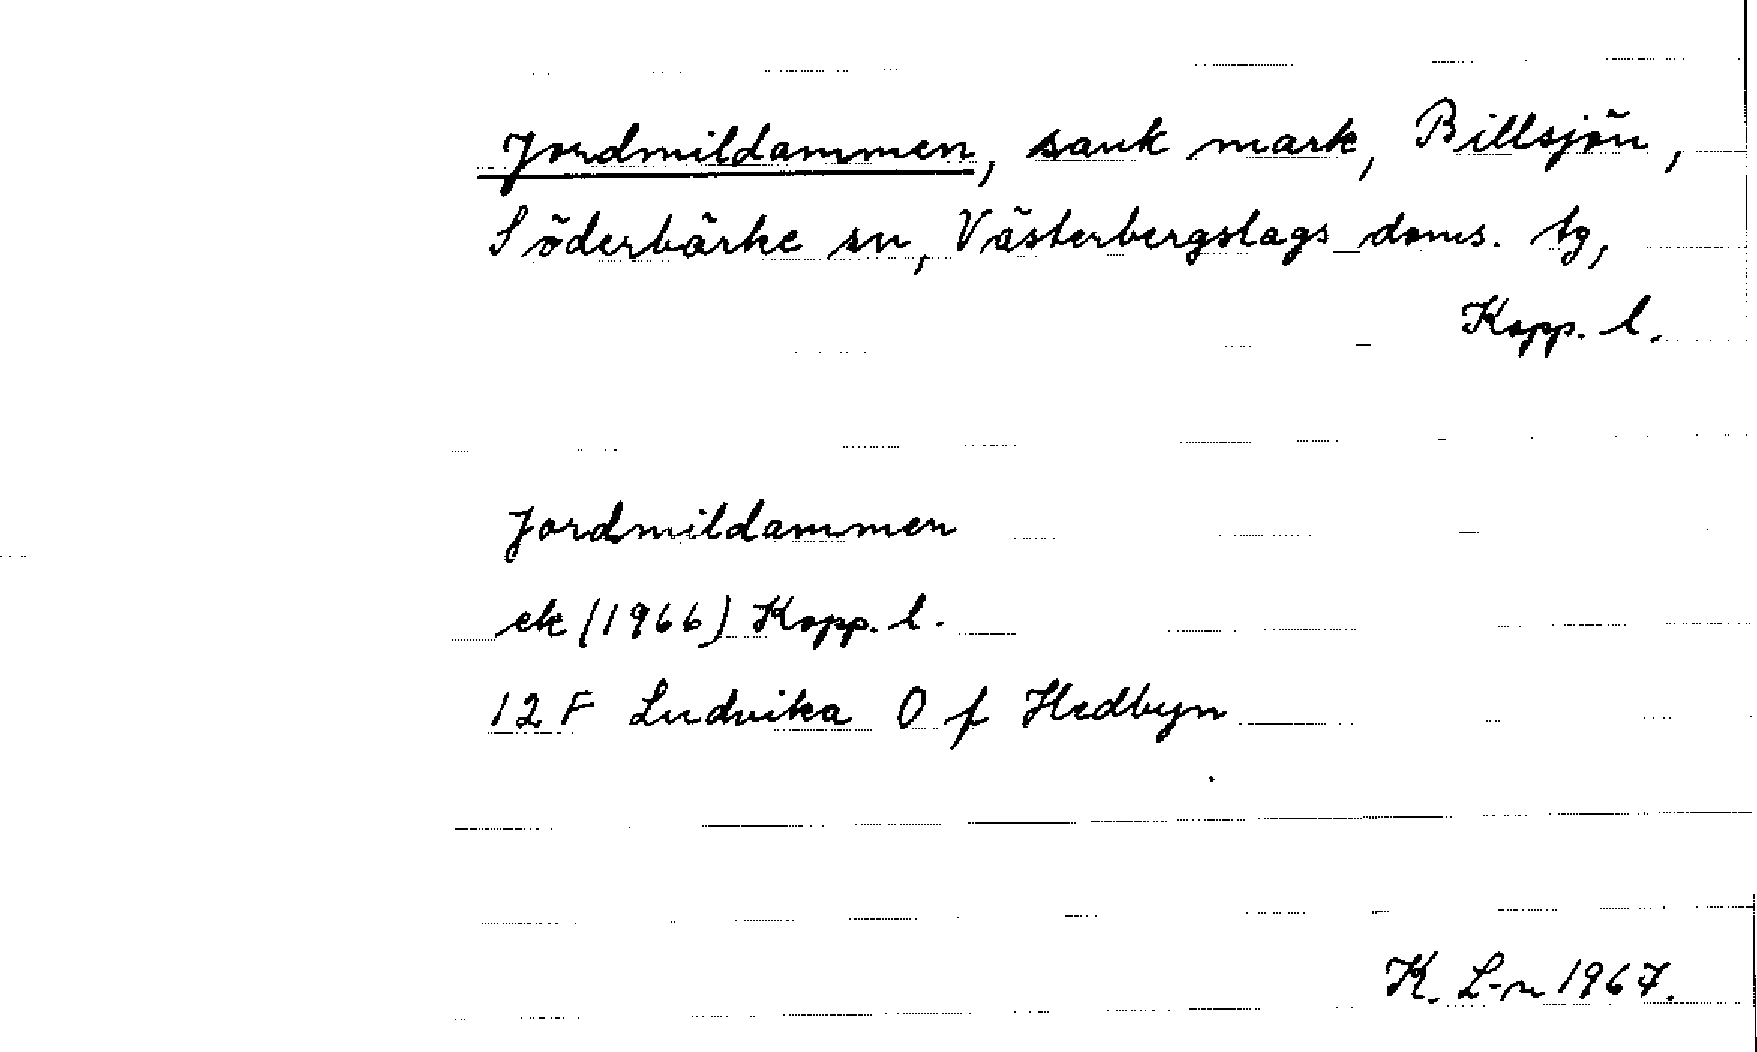 Jordmildammen, sank mark, Billsjön,
Söderbärke sn, Västerbergslags doms. tg,
Kopp. l.
Jordmildammen
ek (1966) Kopp. l.
12 F Ludvika O f Hedbyn
K. L-n 1967.